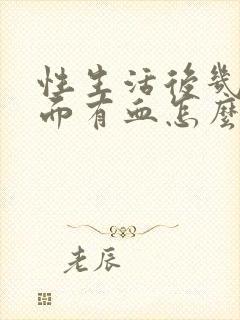 性生活後幾
而有血怎麼
老辰